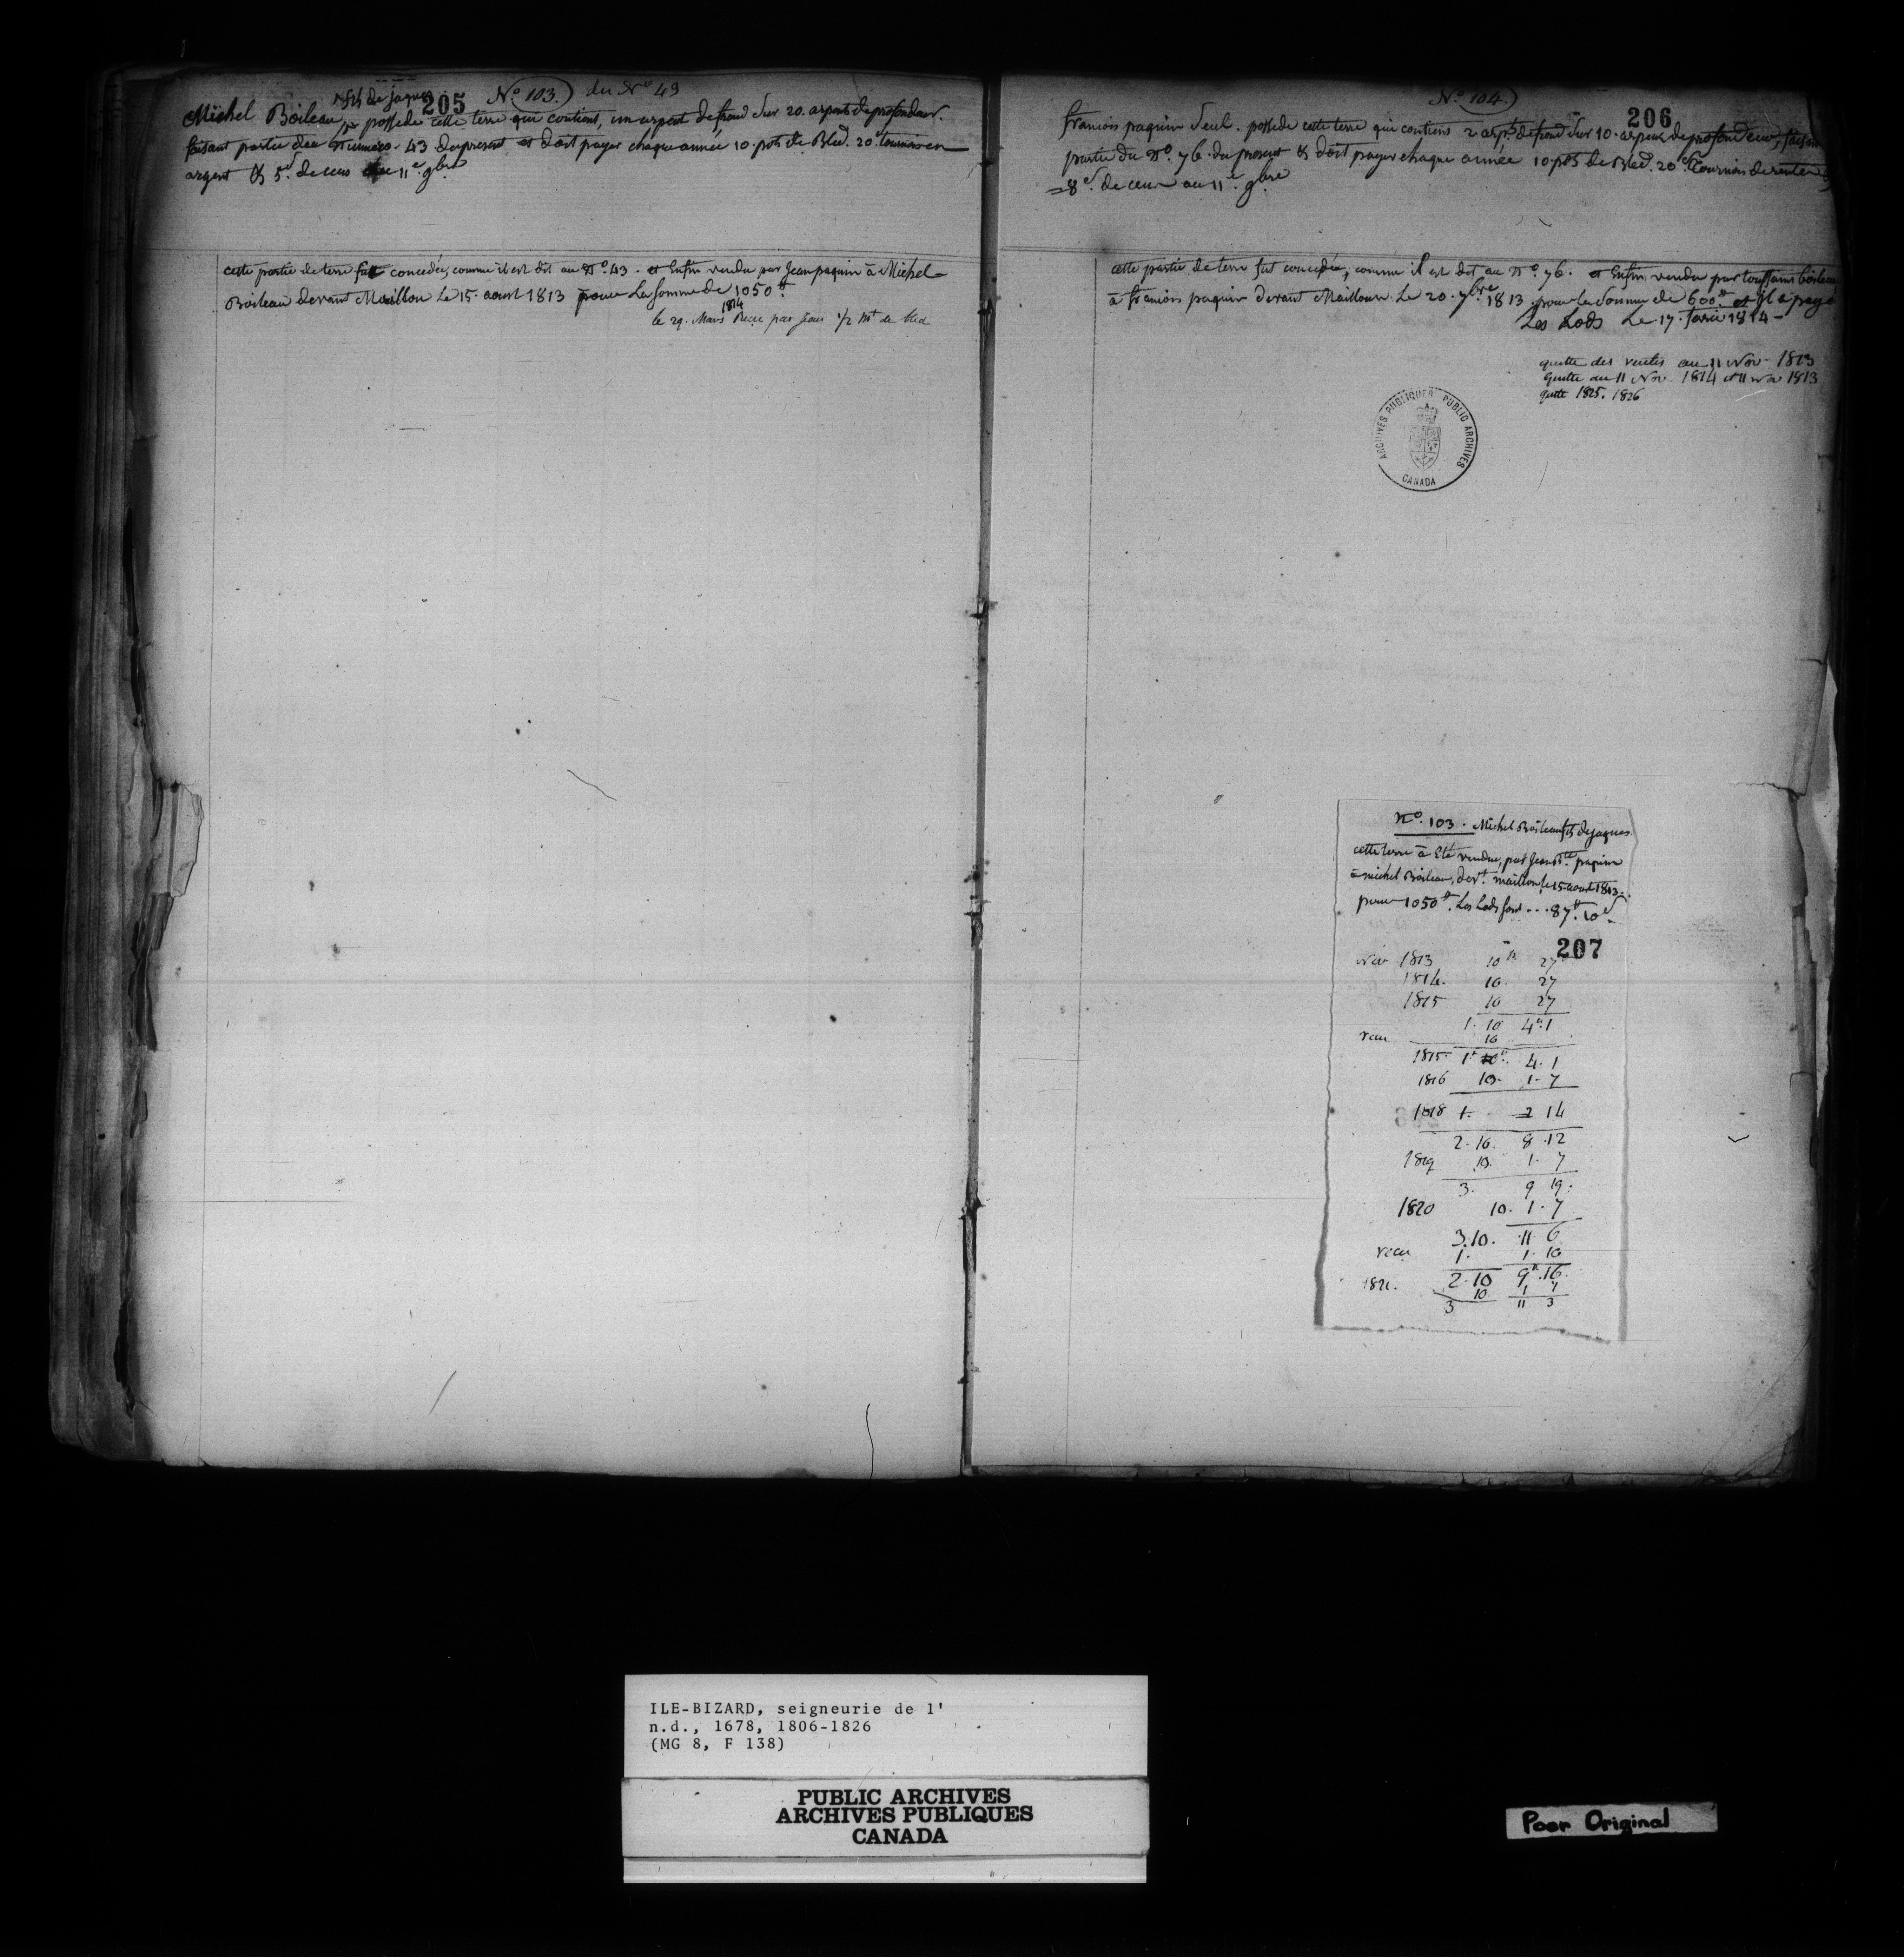 205 No 103. du No 43
fils de jaques
Michel Boileau possede cette terre qui contient, un arpent de froud sur 20. arpents de profondeur.
faisant partie du Numero. 43 du present et doit payer chaque année 10. pots de Bled. 20s tournois en
argent & 5d. de cens au 11e. 9bre
cette partie de terre fut concedée, comme il est dit au No. 43. et Enfin vendu par Jean paquin à Michel
Boileau devant Maillou Le 15. aoust 1813 pour La Somme de 1050tt.
1814
le 29. Mars Recu par Jean 1/2 Mt de bled
No. 104.
206
francois paquin Seul. possede cette terre qui contient 2 arpts. de froud sur 10. arpens de profondeur, faisant
partie du No. 76. du present & doit payer chaque année 10. pots de Bled. 20s Tournois de rente
=8d. de cens au 11e. 9bre
cette partie de terre fut concedée, comme il est dit au No. 76. et Enfin vendu par toussaint boileau
à francois paquin devant Maillou. Le 20. 7bre 1813. pour la Somme de 600tt et il a payé
Les Lods Le 17. fevrier 1814 -
quitte des rentes au 11 Nov. 1813
quitte au 11 Nov. 1814 et 11 nov 1813
quitte 1825. 1826
ARCHIVES PUBLIQUES PUBLIC ARCHIVES
CANADA
No. 103. Michel Boileau fils de jaques.
cette terre à Eté vendue, par Jean Bte. paquin
à michel Boileau, devt. maillou, le 15. aoust 1813.
pour 1050tt. Les Lods font ... 87tt. 10s
207
Nov 1813 10 p. 27
1814. 10. 27
1815 10 27
1. 10 4tt. 1
recu 10
1815. 1. 10. 4. 1
1816 10. 1. 7
1818 1. 2 14
2. 10. 8. 12
1819 10. 1. 7
3. 9 19.
1820 10. 1. 7
3. 10. 11 6
recu 1. 1. 10
2. 10 9tt. 16.
1821. 10. 1 7
3 11 3
ILE-BIZARD, seigneurie de l'
n.d., 1678, 1806-1826
(MG 8, F 138)
PUBLIC ARCHIVES
ARCHIVES PUBLIQUES
CANADA
Poor Original